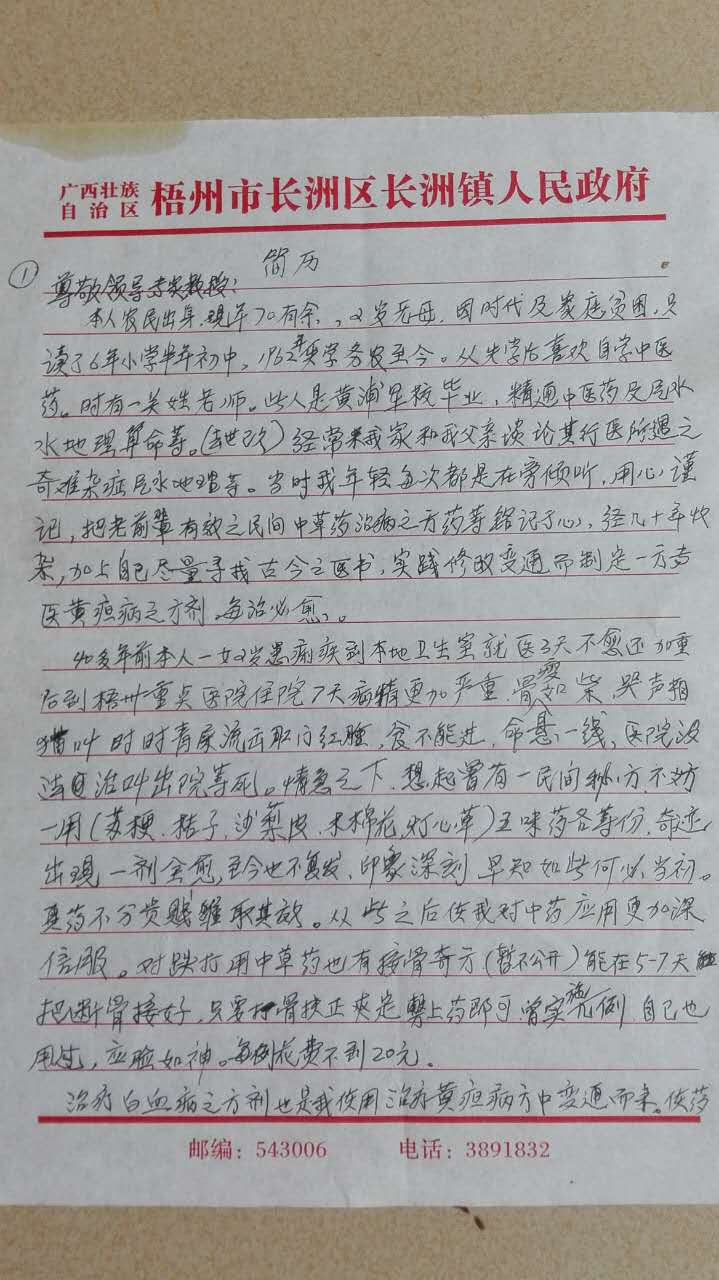 广西壮族
自治区
梧州市长洲区长洲镇人民政府
①
简历
尊敬领导专家教授:
本人农民出身,现年70有余,2岁无母,因时代及家庭贫困,只
读了6年小学半年初中,1962年失学务农至今。从失学后喜欢自学中医
药。时有一吴姓老师。此人是黄浦军校毕业,精通中医药及风水
水地理算命等。(去世) 经常来我家和我父亲谈论其行医所遇之
奇难杂症风水地理等。当时我年轻每次都是在旁倾听,用心谨
记,把老前辈有效之民间中草药治病之方药等铭记于心,经几十年收
集,加上自己尽量寻找古今之医书,实践修改变通而制定一方专
医黄疸病之方剂,每治必愈。
40多年前本人一女2岁患痢疾到本地卫生室就医3天不愈还加重
后到梧州重点医院住院7天病情更加严重,骨瘦如柴,哭声
猫叫时时青屎流出肛门红脸,食不能进,命悬一线,医院没
法治叫出院等死。情急之下,想起曾有一民间秘方不妨
一用(苏梗、桔子、沙梨皮、木棉花,灯心草)五味药各等份,奇迹
出现一剂全愈,至今也不复发,印象深刻早知如此何必当初。
真药不分贵贱谁取其效。从此之后使我对中药应用更加深
信服。对跌打用中草药也有接骨奇方(暂不公开)能在5-7天
把断骨接好,只要把骨扶正夹定,敷上药即可,曾实施几例,自己也
用过,应验如神。每例花费不到20元。
治疗白血病之方剂也是我使用治疗黄疸病方中变通而来。使药
邮编:543006 电话:3891832